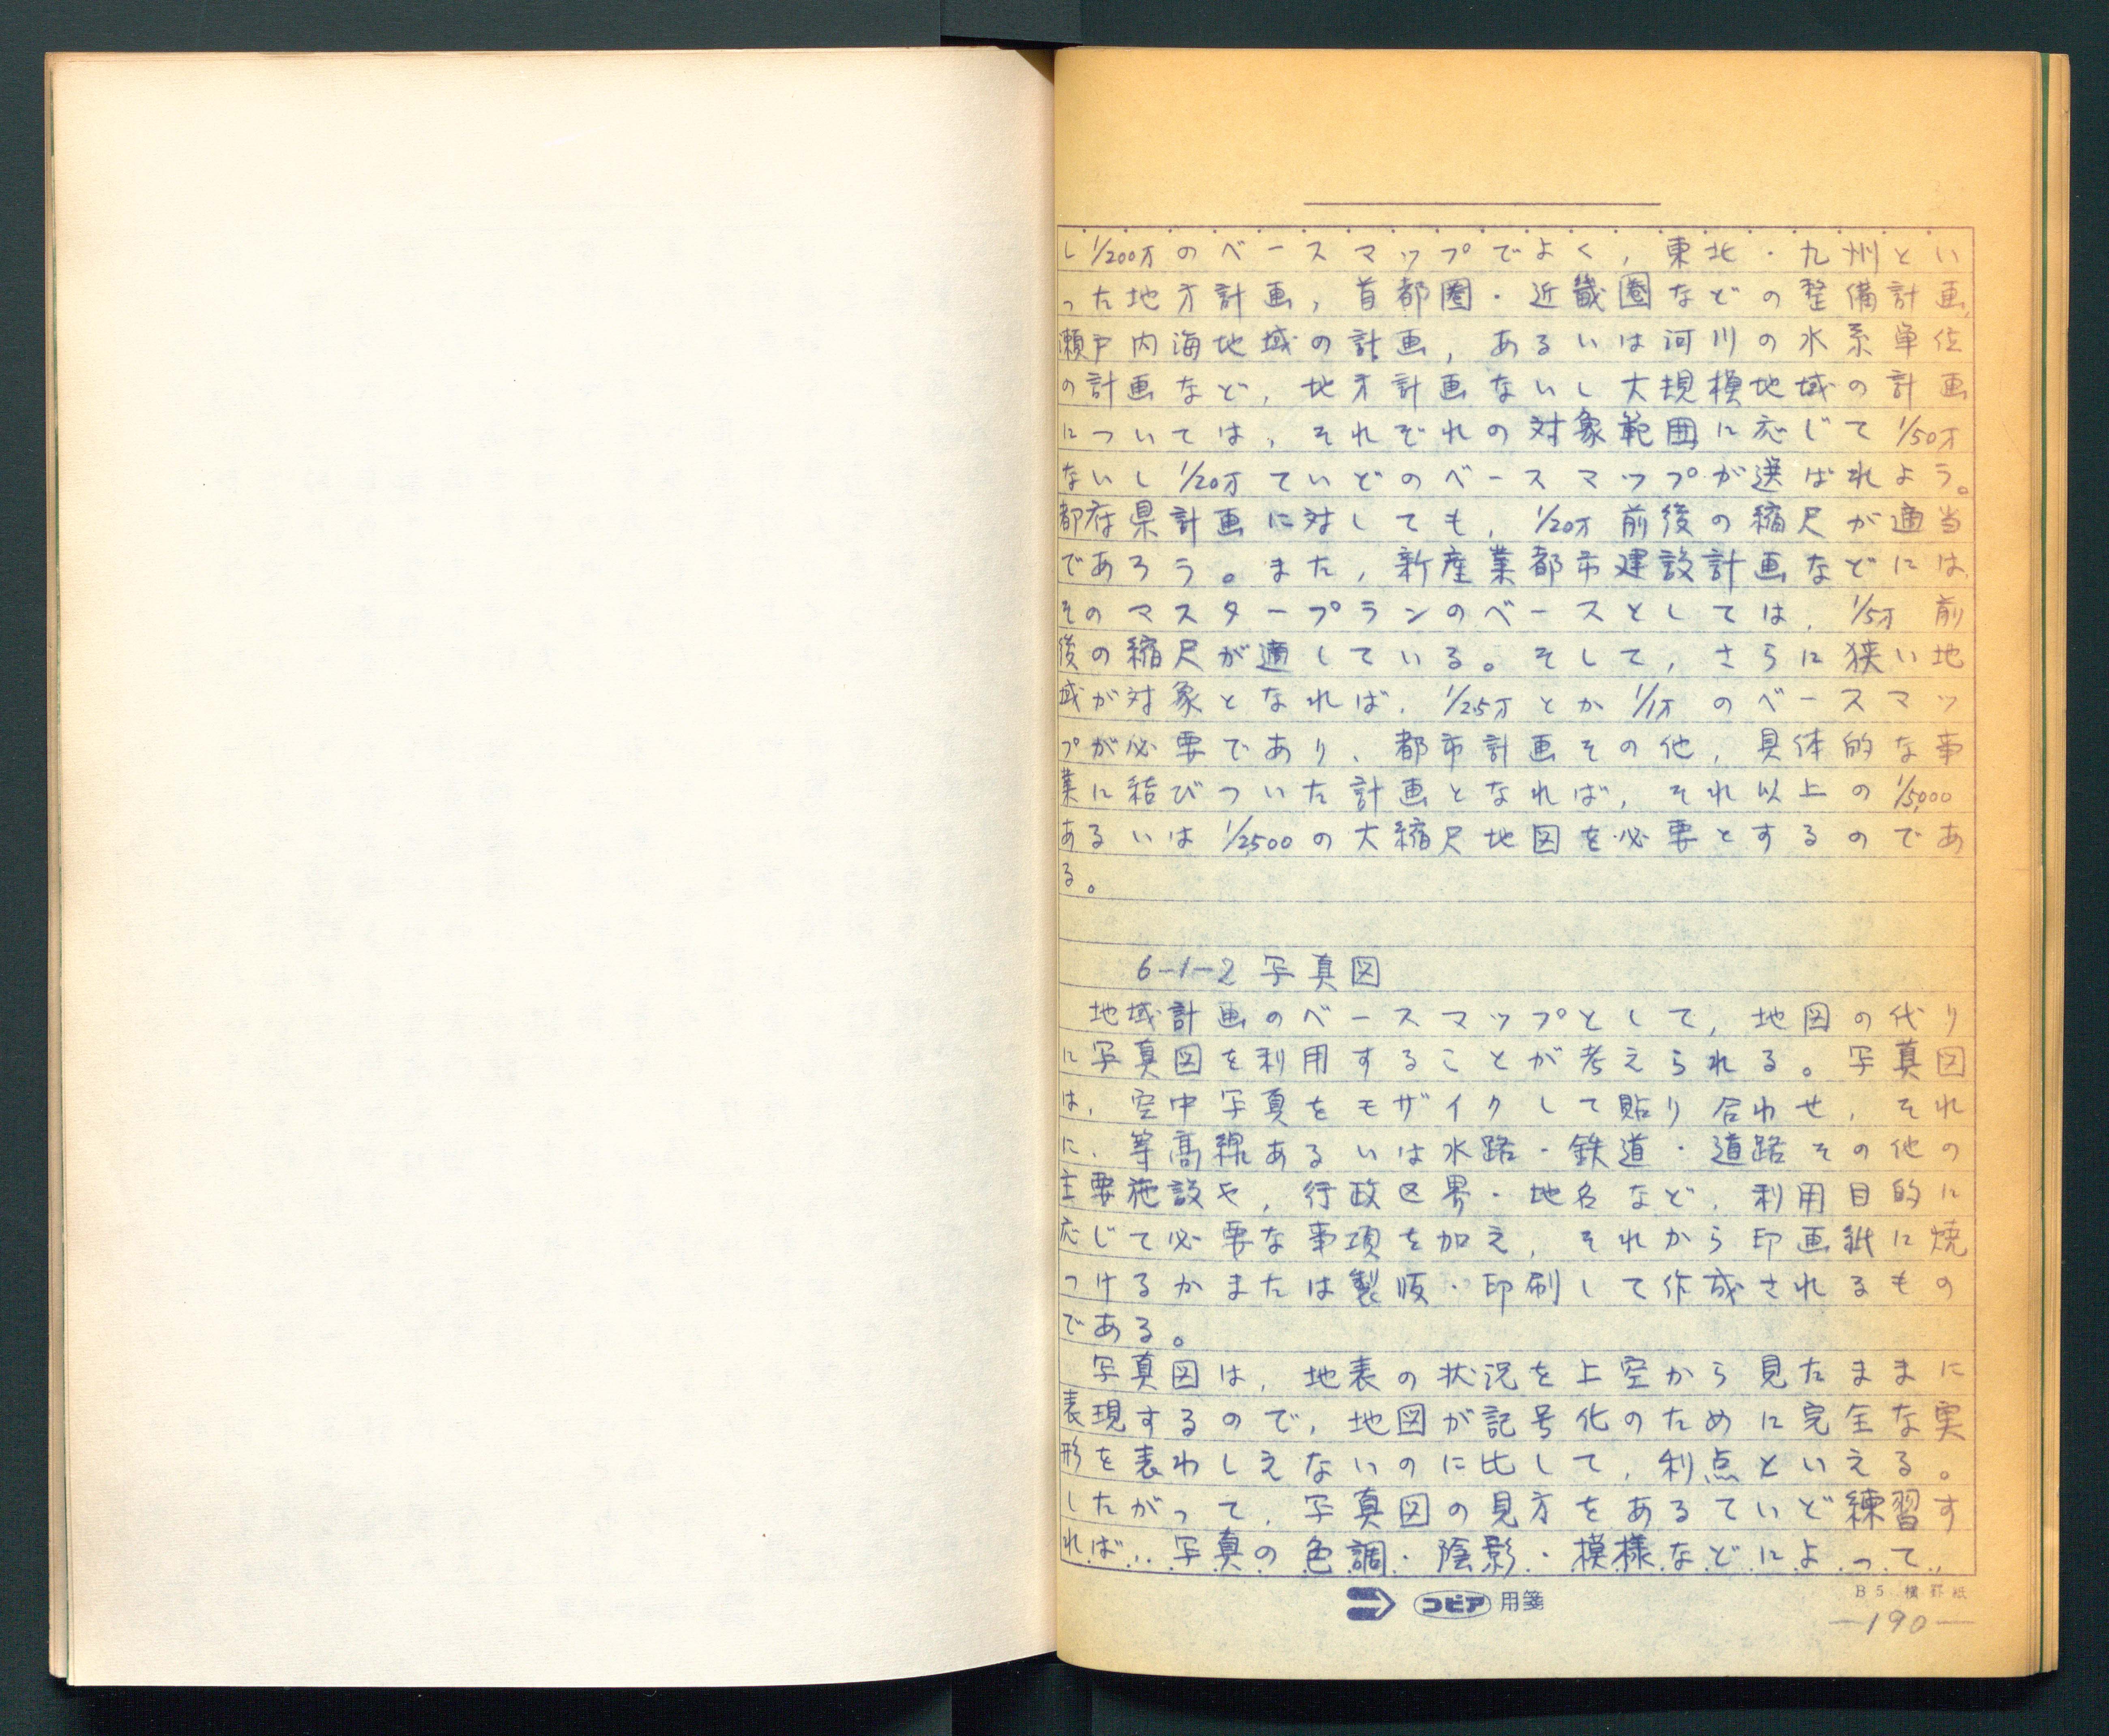 し1/200万のベースマップでよく，東北・九州とい
った地方計画，首都圏・近畿圏などの整備計画，
瀬戸内海地域の計画，あるいは河川の水系単位
の計画など，地方計画ないし大規模地域の計画
については，それぞれの対象範囲に応じて1/50万
ないし1/20万ていどのベースマップが選ばれよう。
都府県計画に対しても，1/20万前後の縮尺が適当
であろう。また，新産業都市建設計画などには，
そのマスタープランのベースとしては，1/5万前
後の縮尺が適している。そして，さらに狭い地
域が対象となれば，1/2.5万とか1/1万のベースマッ
プが必要であり，都市計画その他，具体的な事
業に結びついた計画となれば，それ以上の1/5,000
あるいは1/2500の大縮尺地図を必要とするのであ
る。
6-1-2 写真図
地域計画のベースマップとして，地図の代り
に写真図を利用することが考えられる。写真図
は，空中写真をモザイクして貼り合わせ，それ
に，等高線あるいは水路・鉄道・道路その他の
主要施設や，行政区界・地名など，利用目的に
応じて必要な事項を加え，それから印画紙に焼
つけるかまたは製版・印刷して作成されるもの
である。
写真図は，地表の状況を上空から見たままに
表現するので，地図が記号化のために完全な実
形を表わしえないのに比して，利点といえる。
したがって，写真図の見方をあるていど練習す
れば，写真の色調・陰影・模様などによって，
コピア用箋
B5 横罫紙
—190—